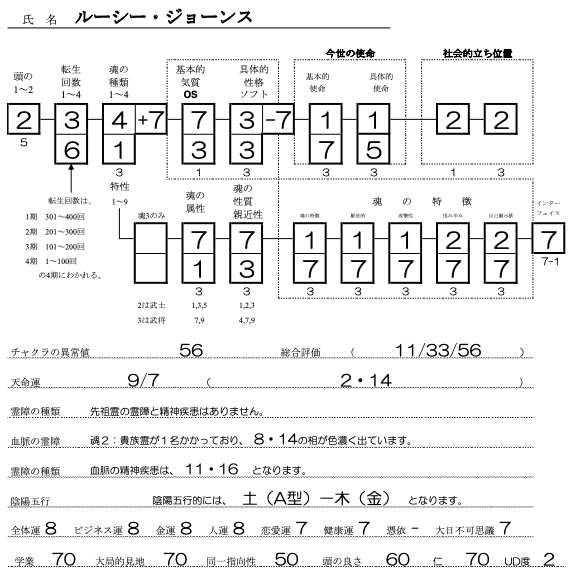 氏　名　ルーシー・ジョーンス
今世の使命　社会的立ち位置
頭の　転生　魂の　基本的　具体的　基本的　具体的
1～2　回数　種類　気質　性格　使命　使命
1～4　1～4　OS　ソフト
2　3　4　+7　7　3　-7　1　1　2　2
5　6　1　3　3　7　5
3　1　3　1　3
転生回数は、　特性　魂の　魂の　魂　の　特　徴　インター
1期　301～400回　1～9　魂3のみ　属性　性質　フェイス
2期　201～300回　親近性　魂の特徴　攻撃性　自己顕示欲
3期　101～200回　7　7　1　1　1　2　2　7
4期　1～100回　1　3　7　7　7　7　7　7-1
の4期にわかれる。　3　3　3　3　3　3　3
2は武士　1,3,5　1,2,3
3は武将　7,9　4,7,9
チャクラの異常値　56　総合評価　（　11/33/56　）
天命運　9/7　（　2・14　）
霊障の種類　先祖霊の霊障と精神疾患はありません。
血脈の霊障　魂2：貴族霊が1名かかっており、8・14の相が色濃く出ています。
霊障の種類　血脈の精神疾患は、　11・16　となります。
陰陽五行　陰陽五行的には、　土（A型）ー木（金）　となります。
全体運　8　ビジネス運　8　金運　8　人運　8　恋愛運　7　健康運　7　憑依　−　大日不可思議　7
学業　70　大局的見地　70　同一指向性　50　頭の良さ　60　仁　70　UD度　2